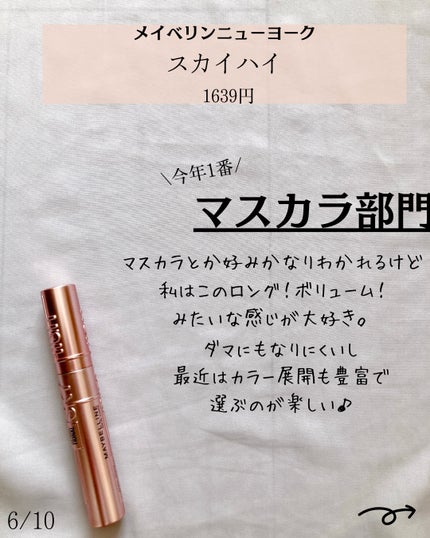 メイベリンニューヨーク
スカイハイ
1639円
\今年1番/
マスカラ部門
マスカラとか好みかなりわかれるけど
私はこのロング!ボリューム!
みたいな感じが大好き。
ダマにもなりにくいし
最近はカラー展開も豊富で
選ぶのが楽しい♪
MAYBELLINE
6/10